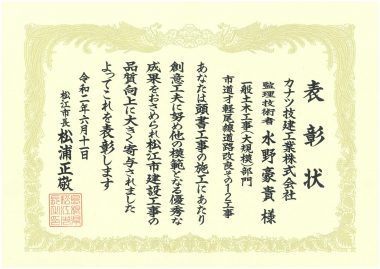 表彰状
カナツ技建工業株式会社
監理技術者 水野豪貴 様
一般土木工事(大規模)部門
市道才軽尾線道路改良その12工事
あなたは頭書工事の施工にあたり
創意工夫に努め他の模範となる優秀な
成果をおさめられ松江市建設工事の
品質向上に大きく寄与されました
よってこれを表彰します
令和二年六月十一日
松江市長 松浦正敬